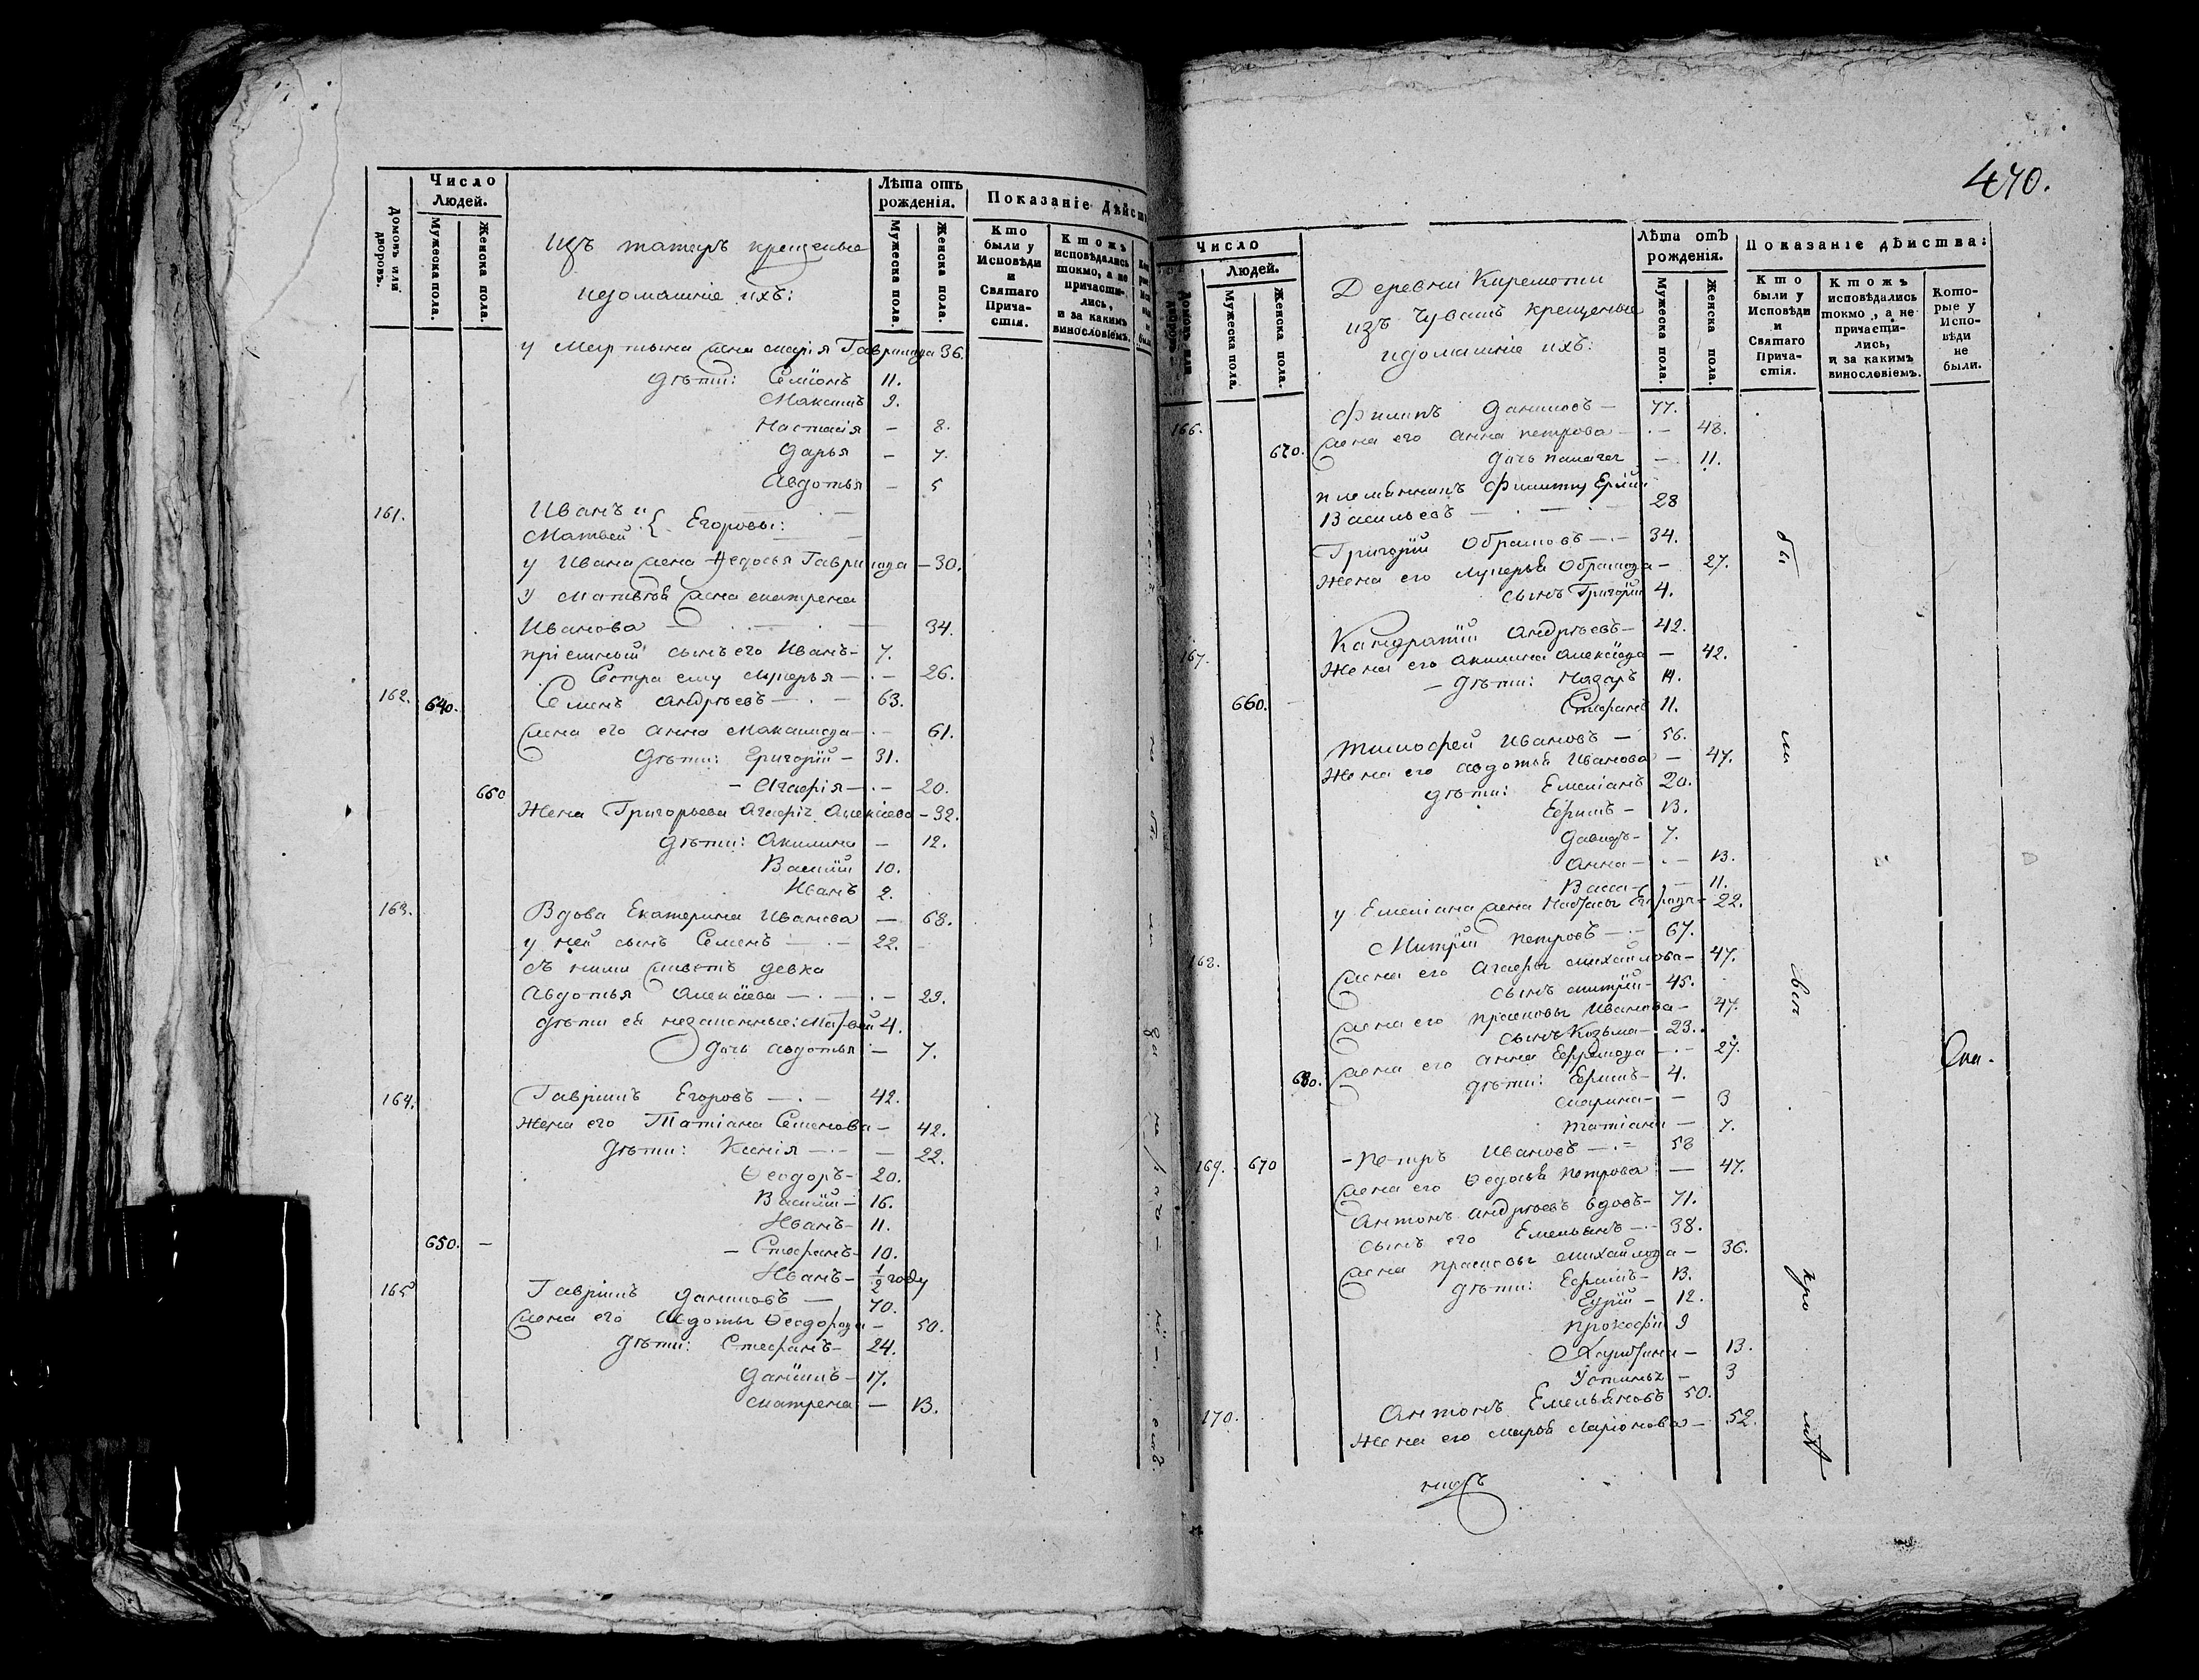 Число Людей.
Домовъ или дворовъ.
Мужеска пола.
Женска пола.
Изъ татаръ крещеные
и домашніе ихъ:
Лѣта отъ рожденія.
Мужеска пола.
Женска пола.
Показаніе дѣйст
Кто были у Исповѣди и Святаго Прича-стія.
Ктожъ исповѣдались токмо, а не причасти-лись, и за какимъ винословіемъ.
у Мартына жена Марія Гаврилова 36.
дѣти: Семіонъ 11.
Максимъ 9.
Настасія - 8.
Дарья - 7.
Авдотья - 5
161. Иванъ
Матвей Егоровы:
у Ивана жена Федосья Гаврилова - 30.
у Матвѣя жена Матрена
Иванова 34.
пріемный сынъ его Иванъ - 7.
Сестра ему Лукерья - 26.
162. 640. Семенъ Андрѣевъ - 63.
Жена его Анна Максимова - 61.
дѣти: Григорій - 31.
660 - Агафія - 20.
Жена Григорьева Агафія Алексіева - 32.
дѣти: Акилина - 12.
Василій 10.
Иванъ 2.
163. Вдова Екатерина Иванова - 68.
у ней сынъ Семенъ - 22.
съ ними живетъ девка
Авдотья Алексіева - 29.
дѣти ея незаконные: Матвей 4.
Дочь Авдотья - 7.
164. Гавріилъ Егоровъ - 42.
Жена его Татіана Семенова - 42.
дѣти: Ксенія - 22.
Ѳеодоръ - 20.
Василій - 16.
Иванъ - 11.
650. - Стефанъ - 10.
Иванъ - 1/2 году
165 Гавріилъ Даниловъ - 70.
Жена его Авдотья Ѳеодорова - 50.
дѣти: Стефанъ - 24.
Даніилъ - 17.
Матрена - 13.
470.
Число
Людей.
Домовъ или дворовъ.
Мужеска пола.
Женска пола.
Деревни Киремотни
изъ Чувашъ крещеные
и домашніе ихъ:
Лѣта отъ рожденія.
Мужеска пола.
Женска пола.
Показаніе дѣиства:
Кто были у Исповѣди и Святаго Прича-стія.
Ктожъ исповѣдались токмо, а не причасти-лись, и за какимъ винословіемъ.
Кото-рые у Испо-вѣди не были.
166. Филипъ Даниловъ - 77.
Жена его Анна Петрова - 48.
670. Дочь Палагея - 11.
племянникъ Филиппу
Васильевъ 28
Григорій Абрамовъ - 34.
Жена его Лукерья Абрамова - 27.
сынъ Григорій 4.
167. Кандратій Андрѣевъ - 42.
Жена его Акилина Алексіева - 42.
- дѣти: Назаръ 14.
660. - Стефанъ 11.
Тимофей Ивановъ - 56.
Жена его Авдотья Иванова - 47.
дѣти: Емеліанъ 20.
Ефимъ - 13.
Давидъ - 7.
Анна - 13.
Васса - 11.
у Емеліана жена - 22.
168. Митрій Петровъ - 67.
Жена его Агафья Михайлова - 47.
сынъ Митрій - 45.
Жена его Прасковья Иванова - 47.
сынъ Козьма - 23.
Жена его Анна Ефимова - 27.
680. дѣти: Ефимъ - 4.
Марина - 3
Татіана - 7.
169. 670 - Петръ Ивановъ - 58
Жена его Ѳедосья Петрова - 47.
Антонъ Андрѣевъ вдовъ - 71.
сынъ его Емельянъ - 38.
Жена Прасковья Михайлова - 36.
дѣти: Ефимъ - 13.
- 12.
Прокофій 9
- 13.
Устинья - 3
170. Антонъ Емельяновъ 50.
Жена его Марья Ларіонова - 52.
бы
ли
всѣ
кро
мѣ